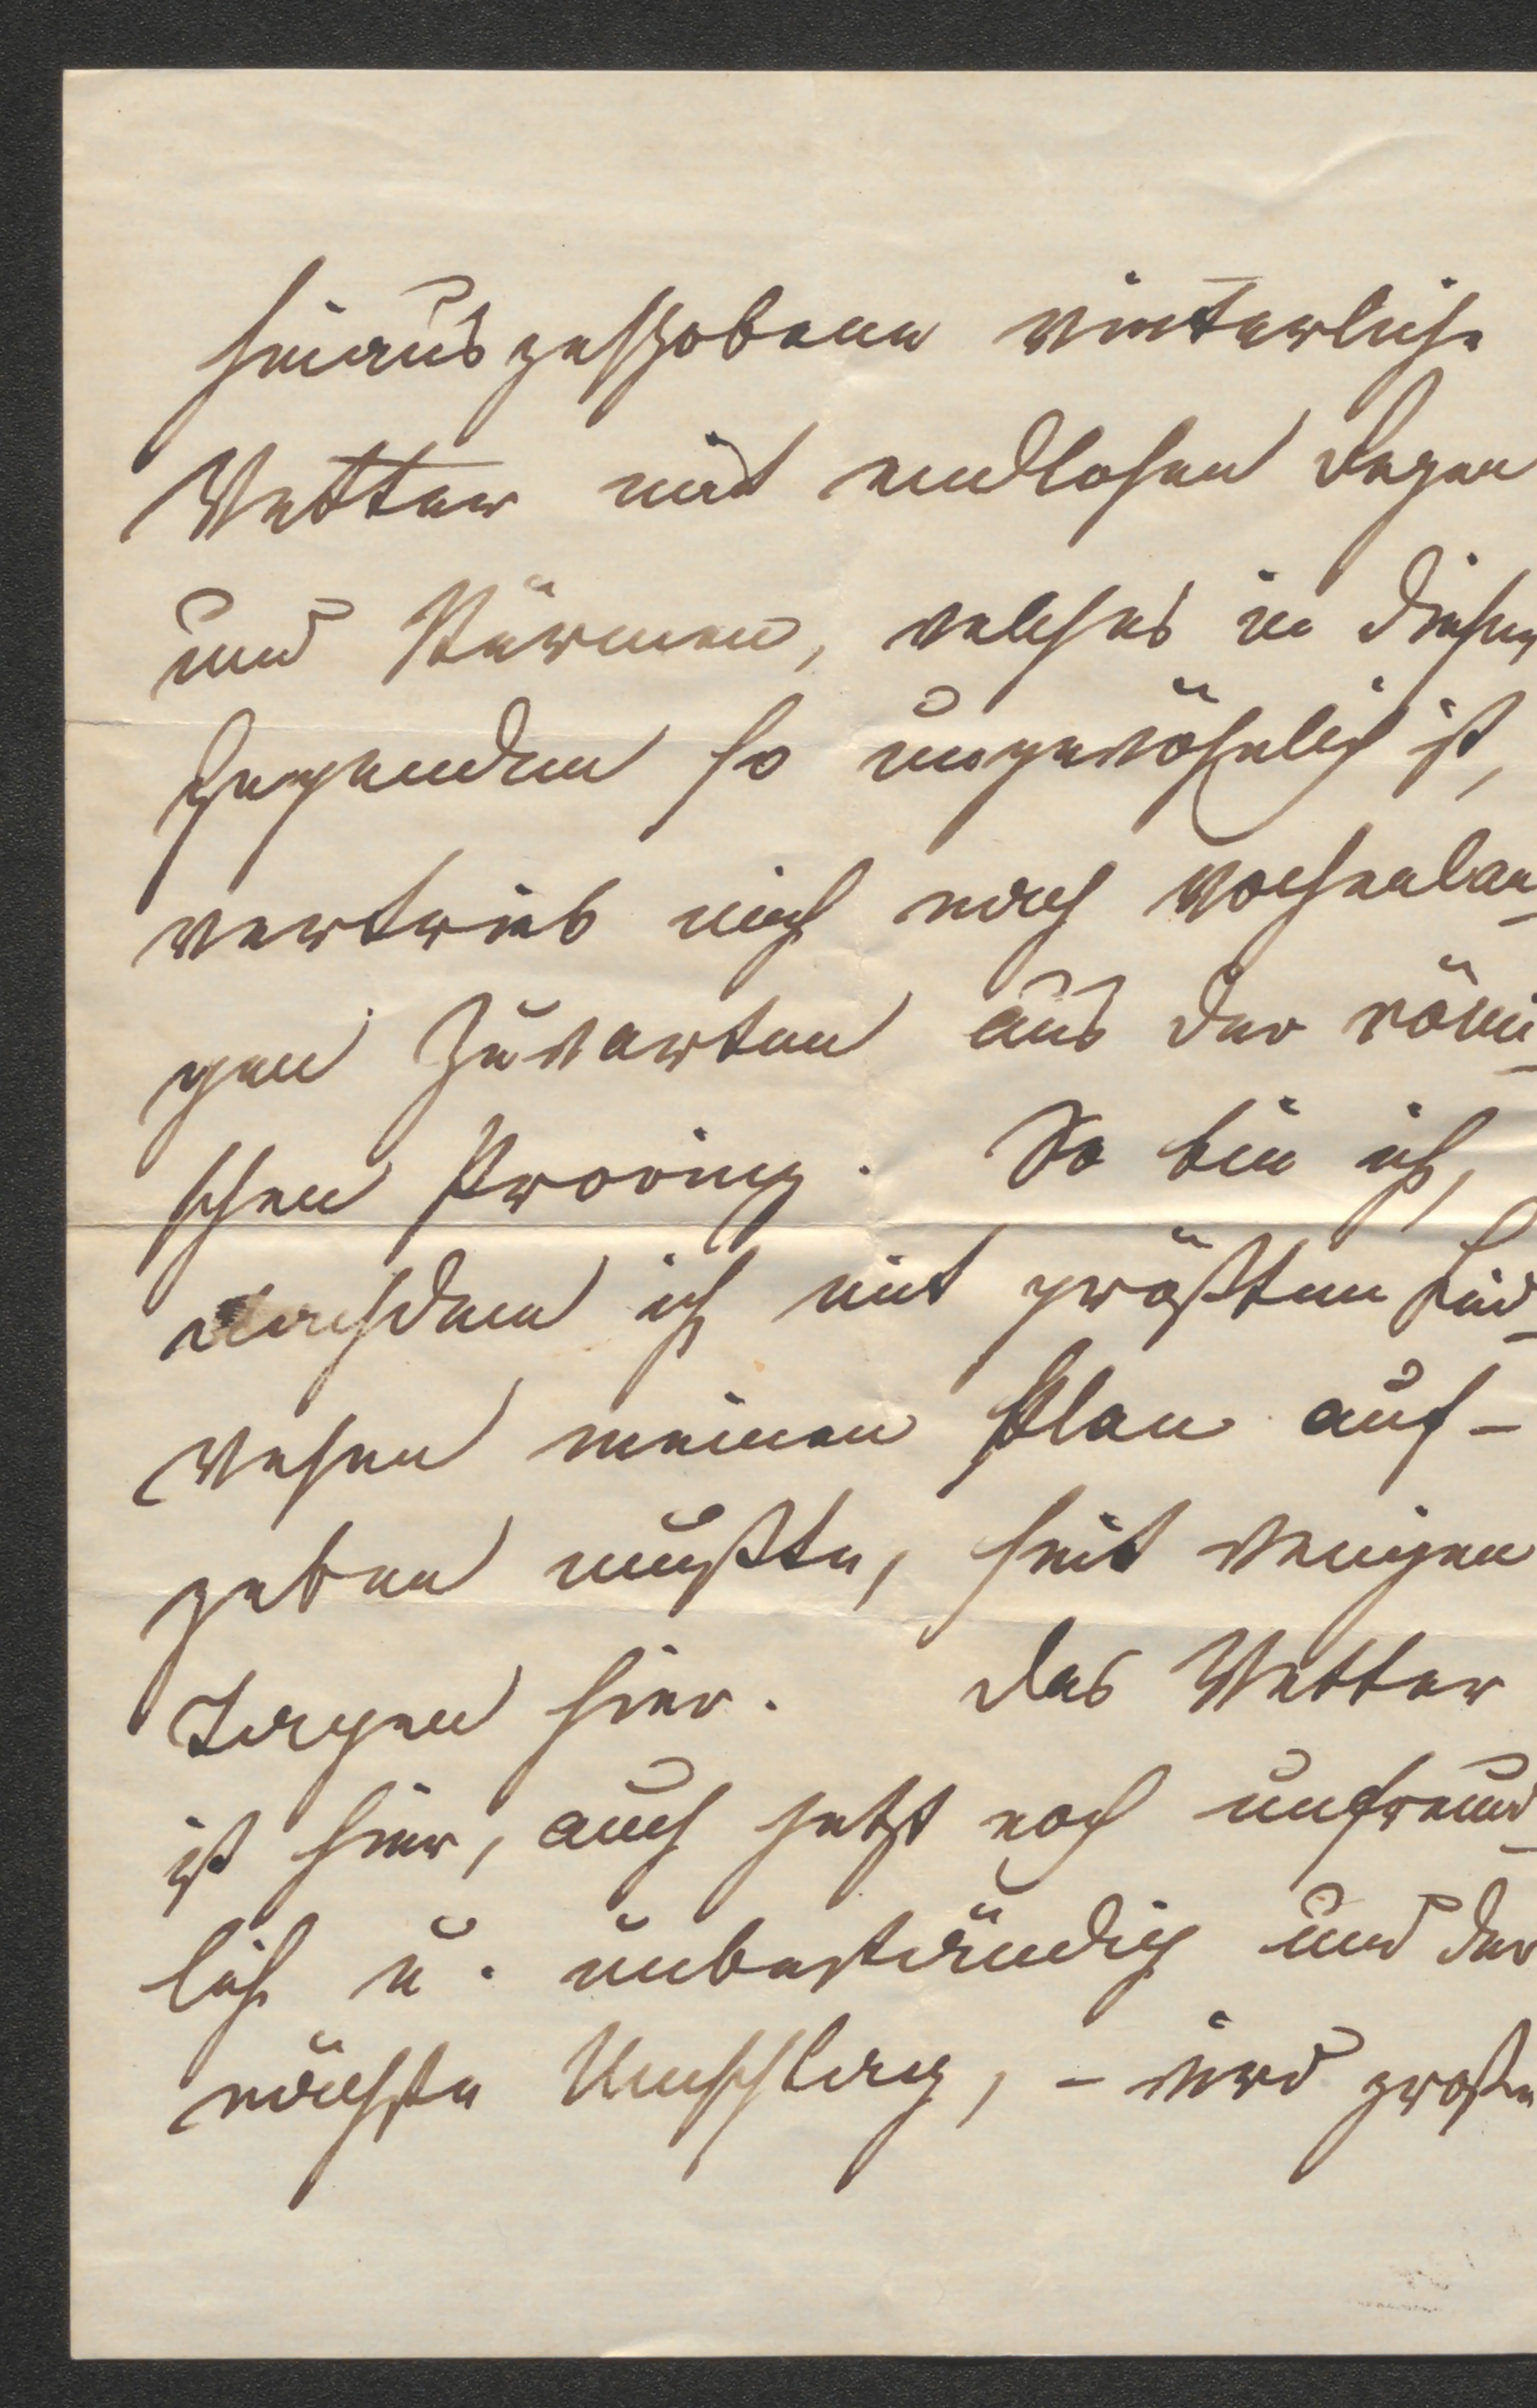 hinausgeschobene winterliche
Wetter mit endlosen Regen
und Stürmen, welches in diesen
Gegenden so ungewöhnlich ist,
vertrieb mich nach wochenlan-
gen Zuwarten aus der römi-
schen Provinz. So bin ich,
nachdem ich mit größten
meinen Plan auf-
geben mußte, seit wenigen
Tagen hier. Das Wetter
ist hier, auch jetzt noch unfreund-
lich u. unbeständig und der
nächste Umschlag, – wird große